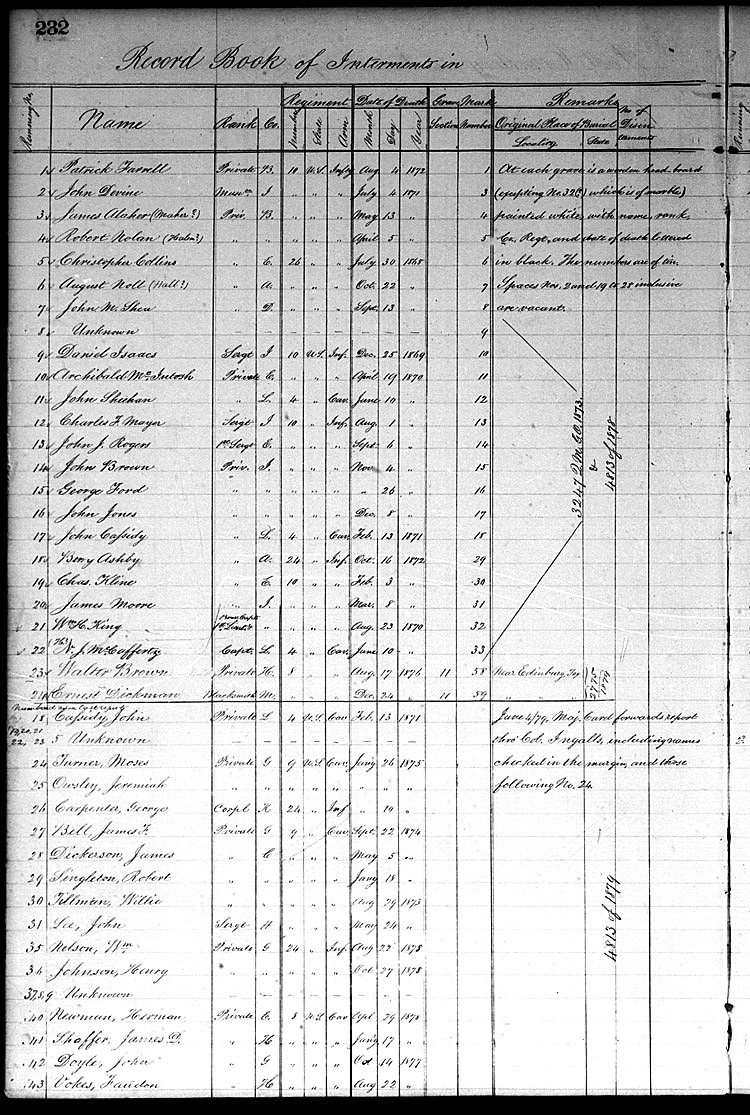 232
Record Book of Interments in
Running No. Name Rank Co. Regiment Number State Arm Date of Death Month Day Year Grave Mark Section Number Remarks Original Place of Burial Locality State No. of Disinterments
1 Patrick Farrell Private B. 10 U.S. Infty Aug 4 1872 1 At each grave is a wooden head-board
2 John Devine Musn I " " " July 4 1871 3 (excepting No. 32(?) which is of marble)
3 James Alaher (Maher?) Priv. B. " " " May 13 " 4 painted white, with name, rank,
4 Robert Nolan (Halen?) " " " " " April 5 " 5 Co., Regt., and date of death lettered
5 Christopher Collins " E. 26 " " July 30 1868 6 in black. The numbers are of tin.
6 August Noll (Hall?) " A. " " " Oct. 22 " 7 Spaces Nos. 2 and 19 to 28 inclusive
7 John M. Shea " D. " " " Sept. 13 " 8 are vacant.
8 Unknown – – – – – – – – 9
9 Daniel Isaacs Sergt I 10 U.S. Inf. Dec. 25 1869 10
10 Archibald McIntosh Private E. " " " April 19 1870 11
11 John Sheehan " L. 4 " Cav. June 10 " 12
12 Charles F. Mayer Sergt I 10 " Inf. Aug. 1 " 13
13 John J. Rogers 1st Sergt E. " " " Sept. 6 " 14
14 John Brown Priv. I. " " " Nov. 4 " 15
15 George Ford " " " " " " 26 " 16
16 John Jones " " " " " Dec. 8 " 17
17 John Cassidy " L. 4 " Cav. Feb. 13 1871 18
18 Berry Ashby " A. 24 " Inf. Oct. 16 1872 29
19 Chas. Kline " E. 10 " " Feb. 3 " 30
20 James Moore " I. " " " Mar. 8 " 31
21 Wm H. King 1st Lieut. " " " " Aug. 23 1870 32
22 N. J. McCaffertz Capt. L. 4 " Cav. June 10 " 33
3247 Q.M.G.O. 1873.
&
4813 of 1878
23 Walter Brown Private H. 8 " " Aug 17 1876 11 58 Near Edinburg Tex
24 Ernest Dickman Blacksmith M. " " " Dec. 24 " 11 59 " " "
2775 1879
18 Cassidy, John Private L 4 U.S. Cav. Feb. 13 1871 June 4/79, Maj. Card forwards report
19, 20, 21
22, 23 5 Unknown – – – – – – – – thro' Col. Ingalls, including names
24 Turner, Moses Private G 9 U.S. Cav. Jan'y 26 1875 checked in the margin, and those
25 Owsley, Jeremiah " " " " " " " " following No. 24.
26 Carpenter, George Corpl K 24 " Inf " 10 "
27 Bell, James F. Private G 9 " Cav. Sept. 22 1874
28 Dickerson, James " C " " " May 5 "
29 Singleton, Robert " " " " " Jan'y 18 "
30 Tillman, Willie " " " " " Aug 29 1873
31 Lee, John Sergt H " " " May 24 "
35 Nelson, Wm Private G 24 " Inf. Aug 22 1878
34 Johnson, Henry " " " " " Oct 27 1878
37, 8, 9 Unknown – – – – – – – –
40 Newman, Herman Private C. 8 U.S. Cav. Apl 29 1878
41 Shaffer, James D. " H " " " Jan'y 17 "
42 Doyle, John " G " " " Oct 14 1877
43 Vokes, Faudon " H " " " Aug 22 "
4813 of 1879